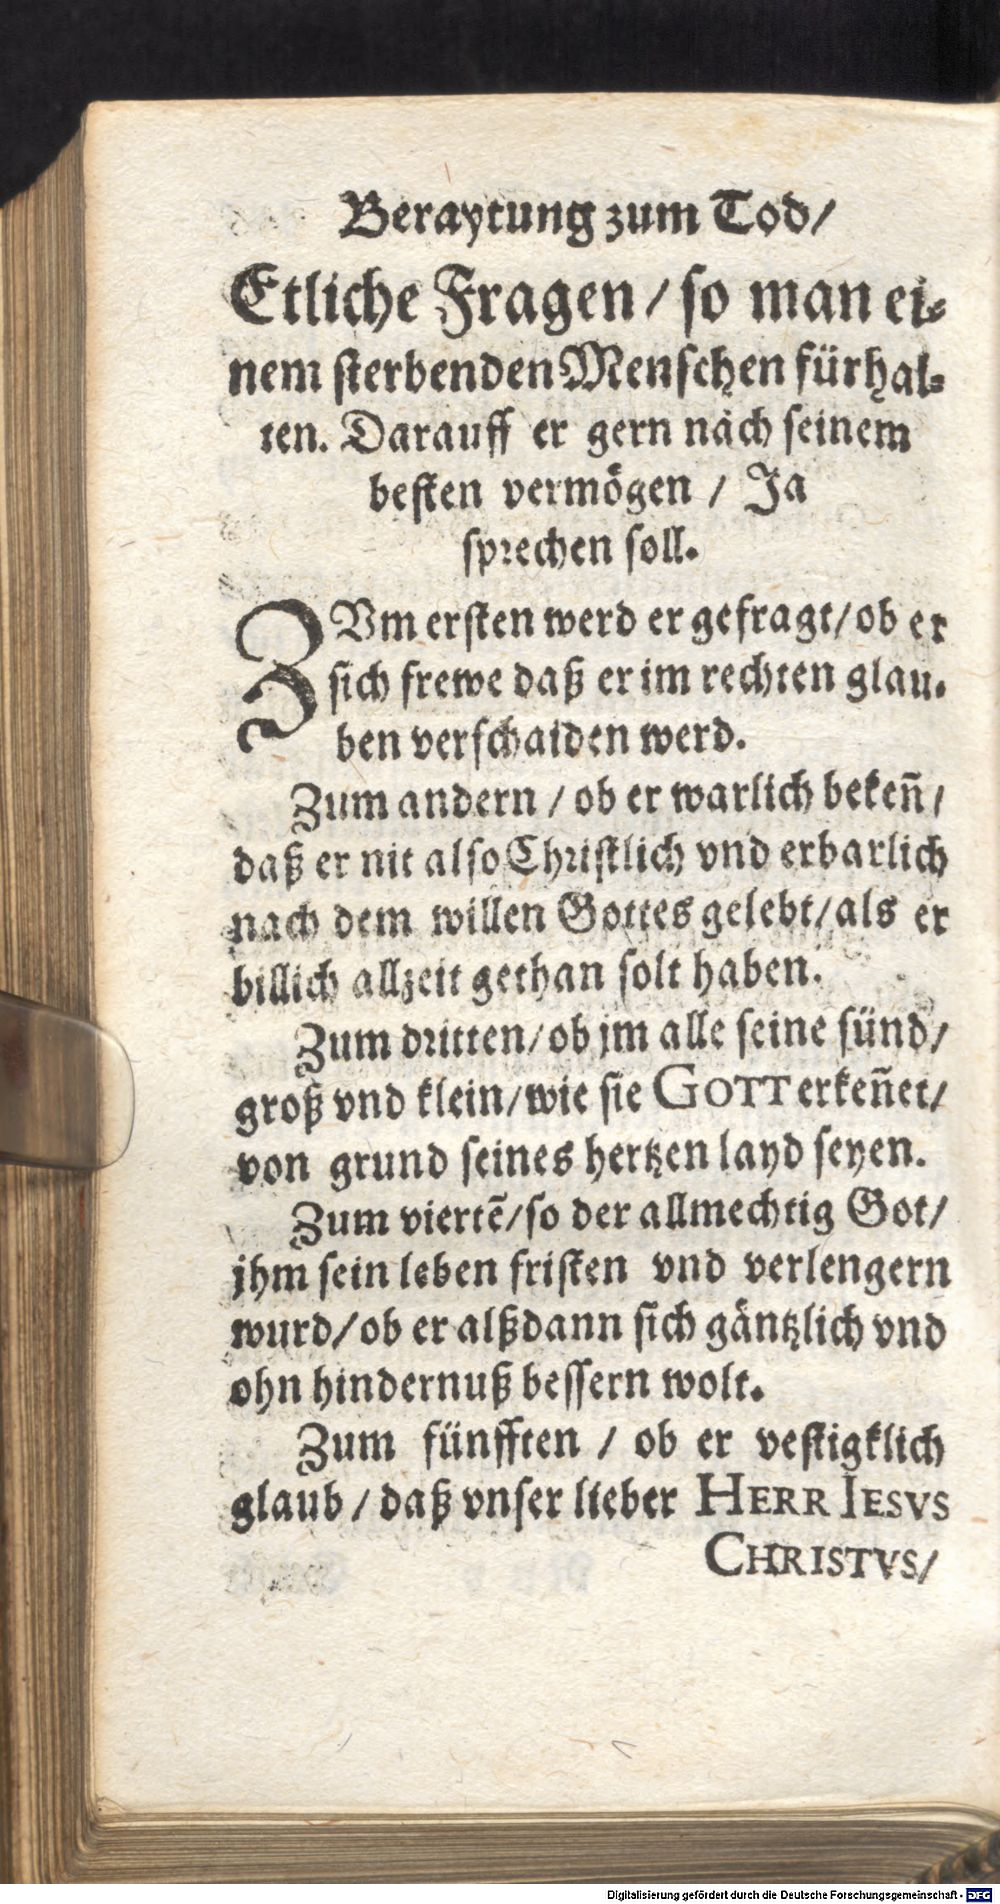 Beraytung zum Tod/
Etliche Fragen / so man ei-
nem sterbenden Menschen fürhal-
ten. Darauff er gern nach seinem
besten vermögen / Ja
sprechen soll.
ZVm ersten werd er gefragt/ ob er
sich frewe daß er im rechten glau-
ben verschaiden werd.
Zum andern / ob er warlich bekeñ/
daß er nit also Christlich vnd erbarlich
nach dem willen Gottes gelebt/ als er
billich allzeit gethan solt haben.
Zum dritten/ ob jm alle seine sünd/
groß vnd klein/ wie sie GOTT erkeñet/
von grund seines hertzen layd seyen.
Zum viertē/ so der allmechtig Got/
jhm sein leben fristen vnd verlengern
wurd/ ob er alßdann sich gäntzlich vnd
ohn hindernuß bessern wolt.
Zum fünfften / ob er vestigklich
glaub / daß vnser lieber HERR IESVS
CHRISTVS/
Digitalisierung gefördert durch die Deutsche Forschungsgemeinschaft - DFG